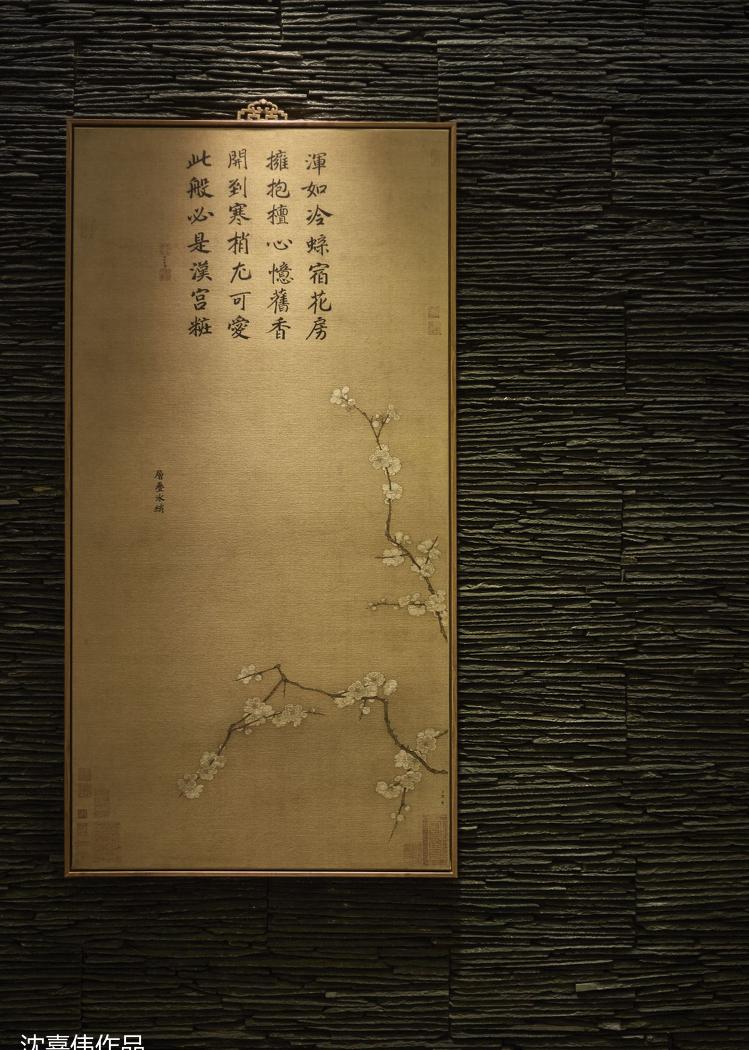 渾如冷蜨宿花房
擁抱檀心憶舊香
開到寒梢尤可愛
此般必是漢宮粧
層疊冰綃
沈嘉伟作品